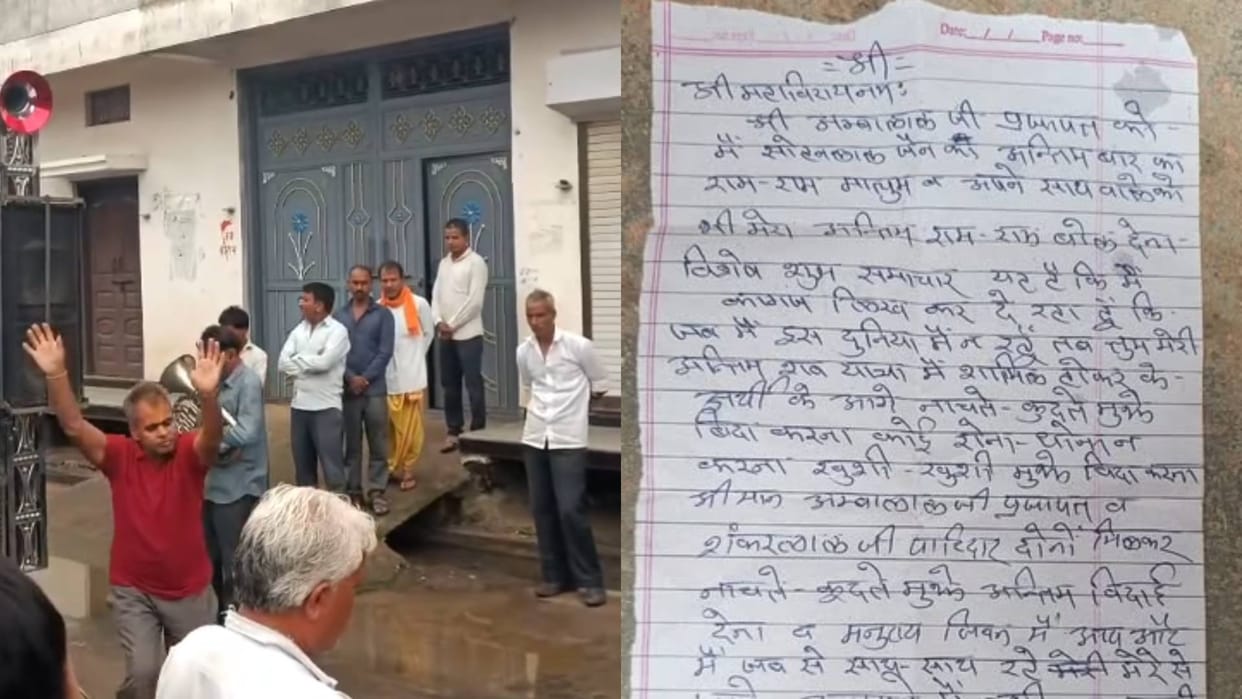 Date: / / Page no:
= श्री =
श्री महाविरायनम:
श्री अम्बालाल जी प्रजापत को-
मैं सोहनलाल जैन का अन्तिम बार का
राम-राम मालुम व अपने साथ वाले को
भी मेरा अन्तिम राम-राम बोल देना-
विशेष शुभ समाचार यह है कि मैं
कागज लिख कर दे रहा हूँ कि-
जब मैं इस दुनिया मैं न रहूँ तब तुम मेरी
अन्तिम शव यात्रा में शामिल होकर के-
अर्थी के आगे नाचते-कुदते मुझे
बिदा करना कोई रोना-धोना न
करना खुशी-खुशी मुझे विदा करना
श्रीमान अम्बालालजी प्रजापत व
शंकरलाल जी पाटिदार दोनों मिलकर
नाचते-कूदते मुझे अन्तिम विदाई
देना व मनुष्य जिवन में आप और
मैं जब से साथ-साथ रहे मेरे से